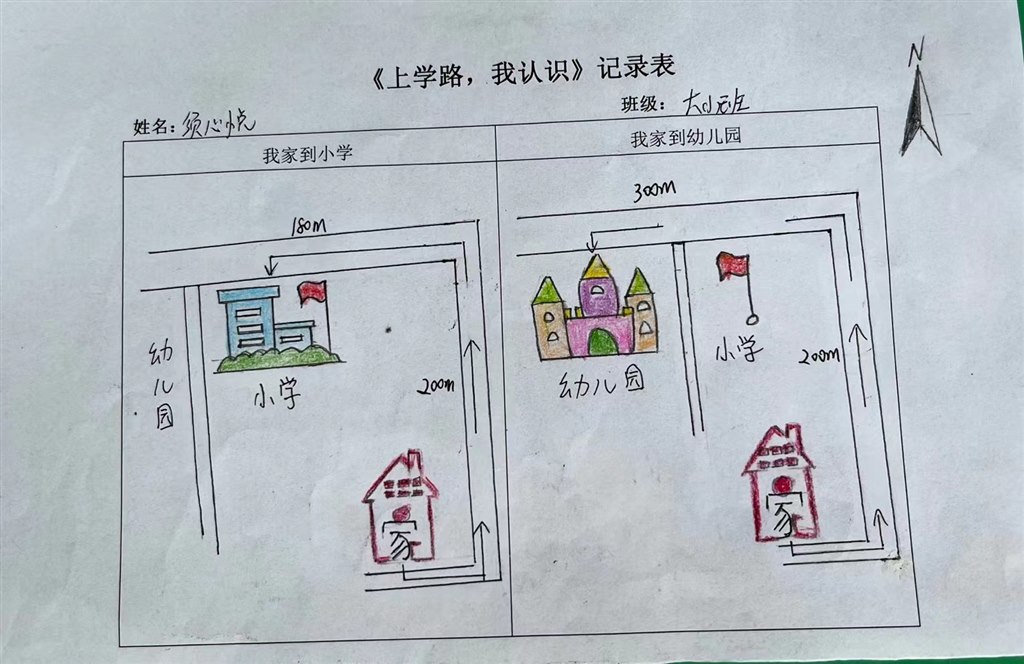 N
《上学路，我认识》记录表
姓名：须心悦
班级：大小班
我家到小学
我家到幼儿园
180m
200m
幼儿园
小学
家
300m
200m
幼儿园
小学
家